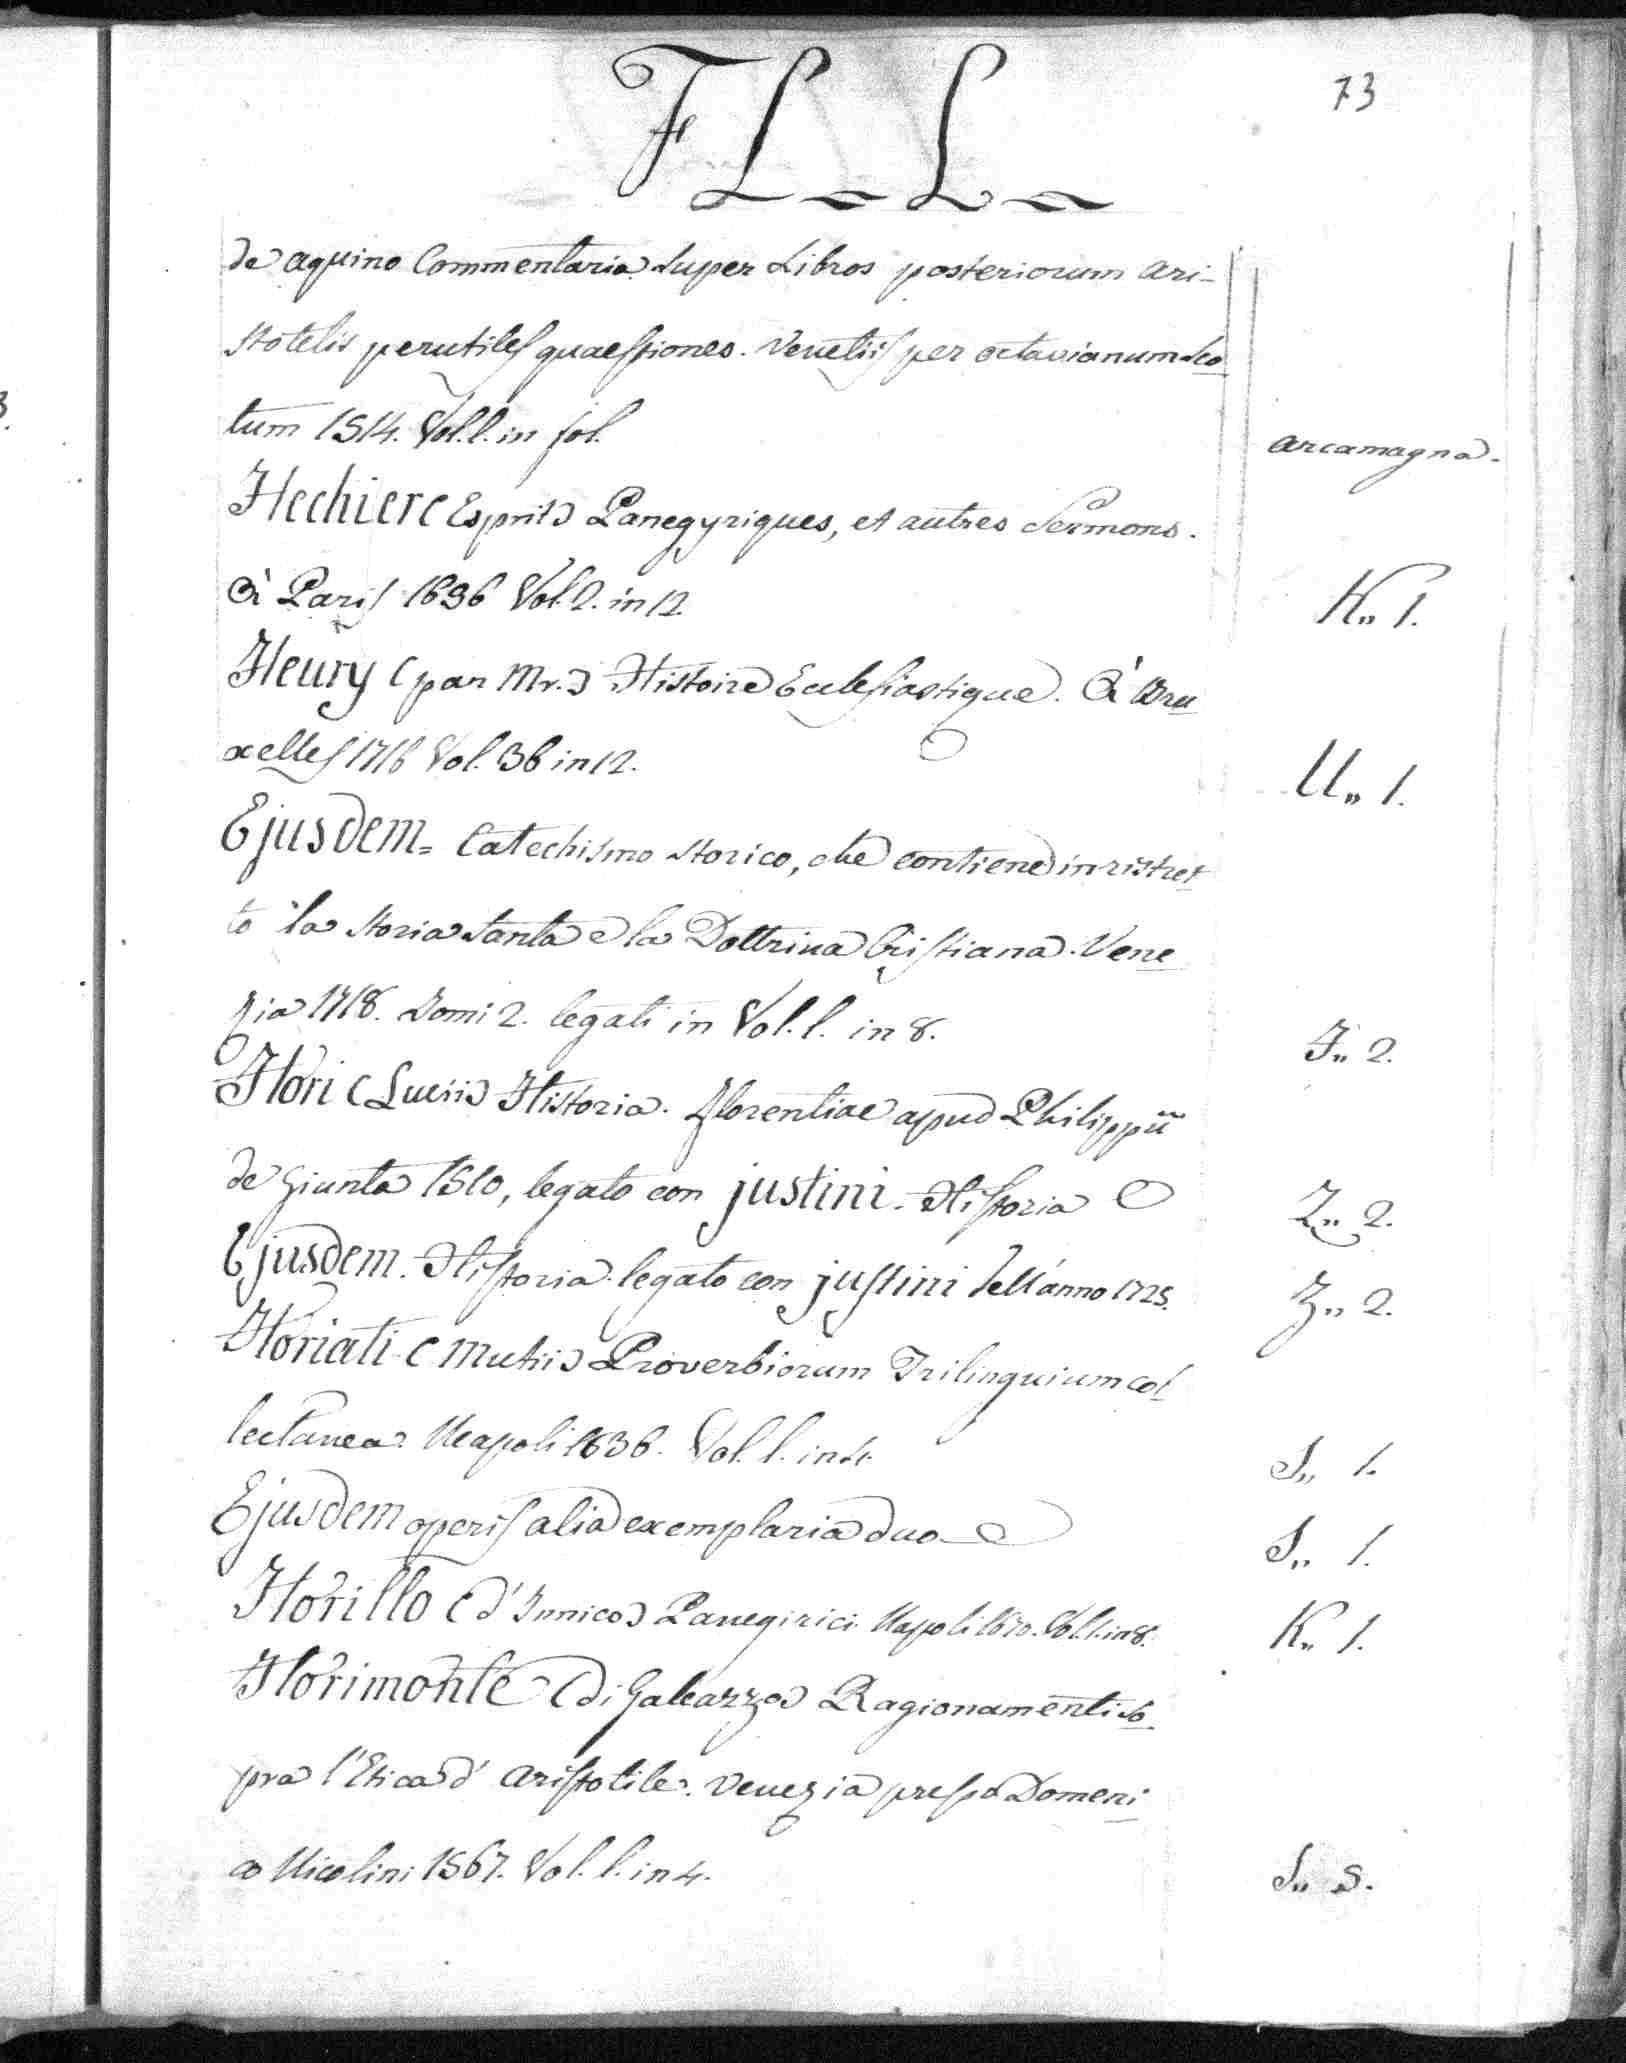 73
F L = L =
de aquino Commentaria super Libros posteriorum Ari-
stotelis perutiles quaestiones. Venetiis per octavianum Sco
tum 1514. Vol. 1. in fol. Arcamagna.
Flechier (Esprit) Panegyriques, et autres Sermons.
à Paris 1696 Vol. 2. in 12. K„ 1.
Fleury (par Mr.) Histoire Ecclesiastique. à Bru
xelles 1716 Vol. 36 in 12. U„ 1.
Ejusdem = Catechismo storico, che contiene in ristret
to la storia santa e la Dottrina Cristiana. Vene
zia 1718. Tomi 2. legati in Vol. 1. in 8. F„ 2.
Flori (Lucii) Historia. Florentiae apud Philippū
de Giunta 1510, legato con justini. Historia Z„ 2.
Ejusdem. Historia legato con justini dell'anno 1725. Z„ 2.
Floriati (Mutii) Proverbiorum Trilinguium col
lectanea. Napoli 1636. Vol. 1. in 4. S„ 1.
Ejusdem operis alia exemplaria duo S„ 1.
Florillo (d'Innico) Panegirici Napoli 1670. Vol. 1. in 8. K„ 1.
Florimonte (di Galeazzo) Ragionamenti so
pra l'Etica d'Aristotile. Venezia presso Domeni
co Nicolini 1567. Vol. 1. in 4. S„ 5.